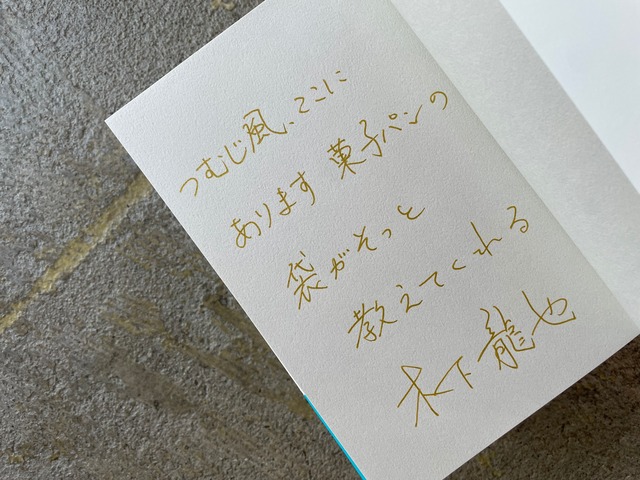 つむじ風、ここに
あります 菓子パンの
袋がそっと
教えてくれる
木下龍也